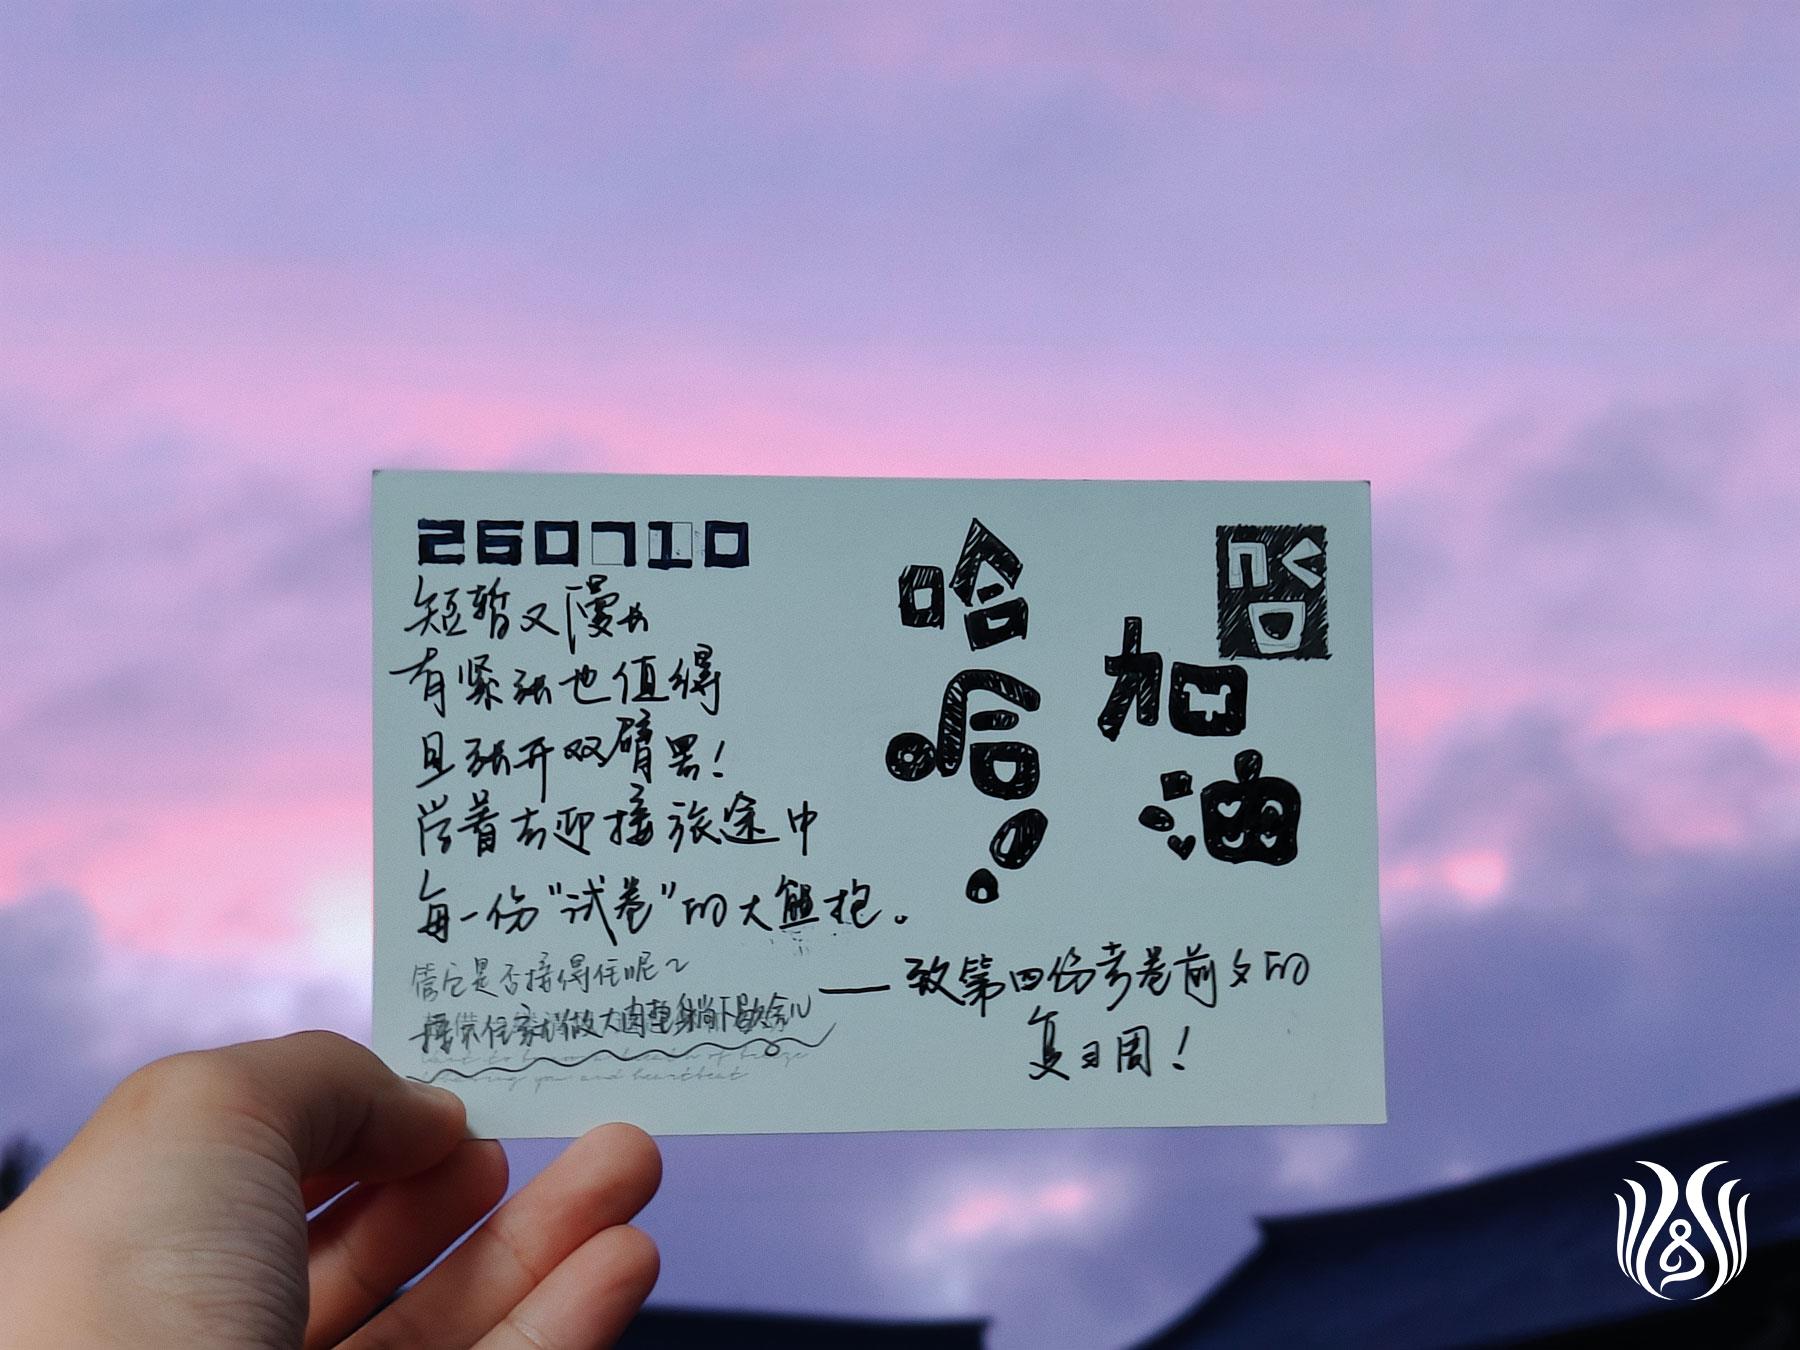 260710
短暂又漫长
有紧张也值得
且张开双臂罢！
尚着去迎接旅途中
每一份“试卷”的大熊抱。
管它是否接得住呢~
接不住就做大肉垫躺下歇会儿
哈哈！
加油
——致第四份考卷前夕的
复习周！